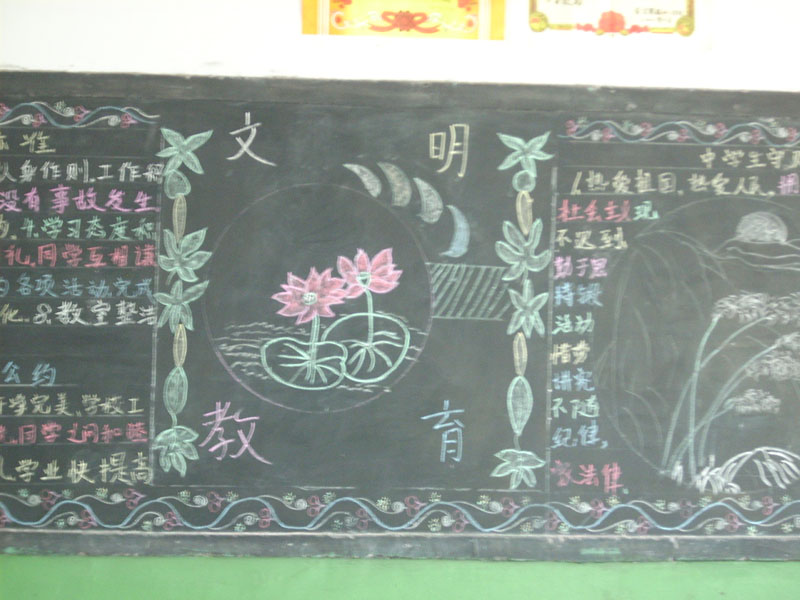 标准
以身作则,工作积
没有事故发生
学习态度积
礼,同学互相谦
各项活动完成
化,8,教室整洁
公约
学完美,学校工
同学之间和睦
学业快提高
文明
教育
中学生守则
1,热爱祖国,热爱人民,拥
社会主义现
不迟到,
勤于思
持锻
活动
惜劳
讲究
不随
纪律,
法律